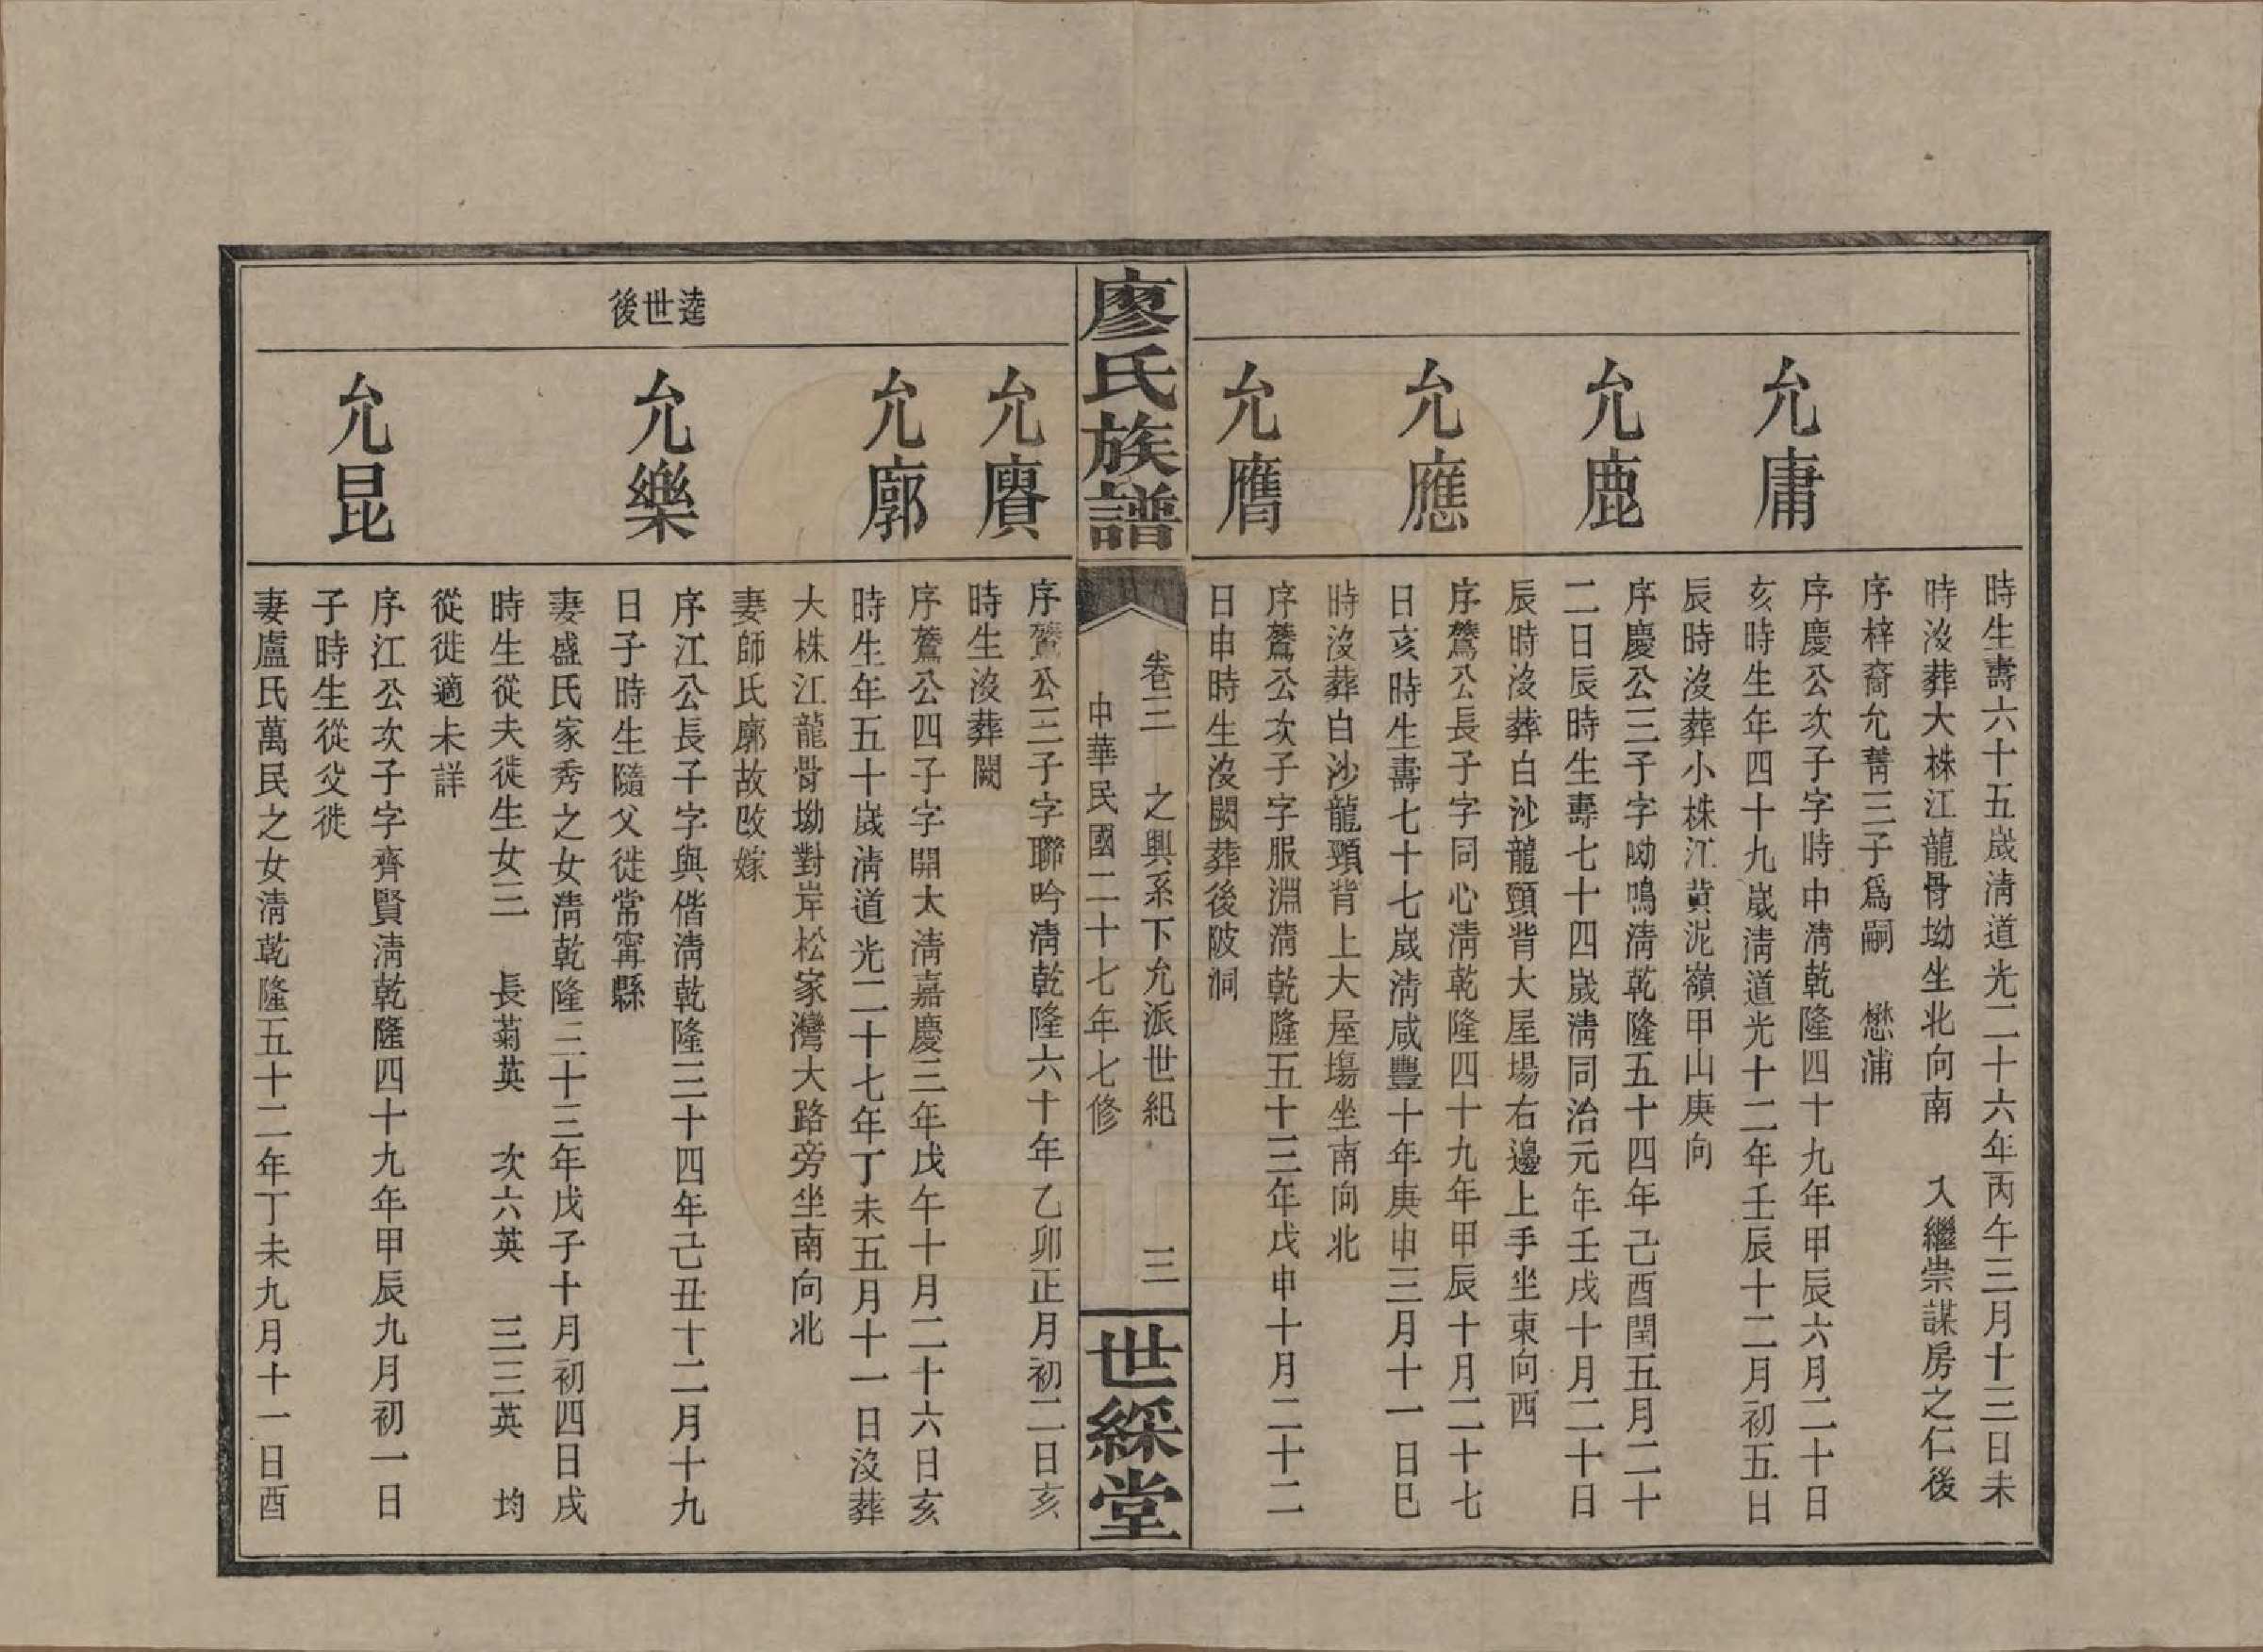 時生壽六十五歲淸道光二十六年丙午三月十三日未
時沒葬大株江龍骨坳坐北向南　入繼崇謀房之仁後
序梓裔允菁三子爲嗣　懋浦
允庸
序慶公次子字時中淸乾隆四十九年甲辰六月二十日
亥時生年四十九歲淸道光十二年壬辰十二月初五日
辰時沒葬小株江黃泥嶺甲山庚向
允鹿
序慶公三子字呦鳴淸乾隆五十四年己酉閏五月二十
二日辰時生壽七十四歲淸同治元年壬戌十月二十日
辰時沒葬白沙龍頸背大屋場右邊上手坐東向西
允應
序鶩公長子字同心淸乾隆四十九年甲辰十月二十七
日亥時生壽七十七歲淸咸豐十年庚申三月十一日巳
時沒葬白沙龍頸背上大屋塲坐南向北
允膺
序鶩公次子字服淵淸乾隆五十三年戊申十月二十二
日申時生沒闕葬後陂洞
廖氏族譜
卷三　之興系下允派世紀　三
中華民國二十七年七修
世綵堂
允賡
序鶩公三子字聯吟淸乾隆六十年乙卯正月初二日亥
時生沒葬闕
允廓
序鶩公四子字開太淸嘉慶三年戊午十月二十六日亥
時生年五十歲淸道光二十七年丁未五月十一日沒葬
大株江龍骨坳對岸松家灣大路旁坐南向北
妻師氏廓故改嫁
逵世後
允樂
序江公長子字與偕淸乾隆三十四年己丑十二月十九
日子時生隨父徙常甯縣
妻盛氏家秀之女淸乾隆三十三年戊子十月初四日戌
時生從夫徙生女三　長菊英　次六英　三三英　均
從徙適未詳
允昆
序江公次子字齊賢淸乾隆四十九年甲辰九月初一日
子時生從父徙
妻盧氏萬民之女淸乾隆五十二年丁未九月十一日酉